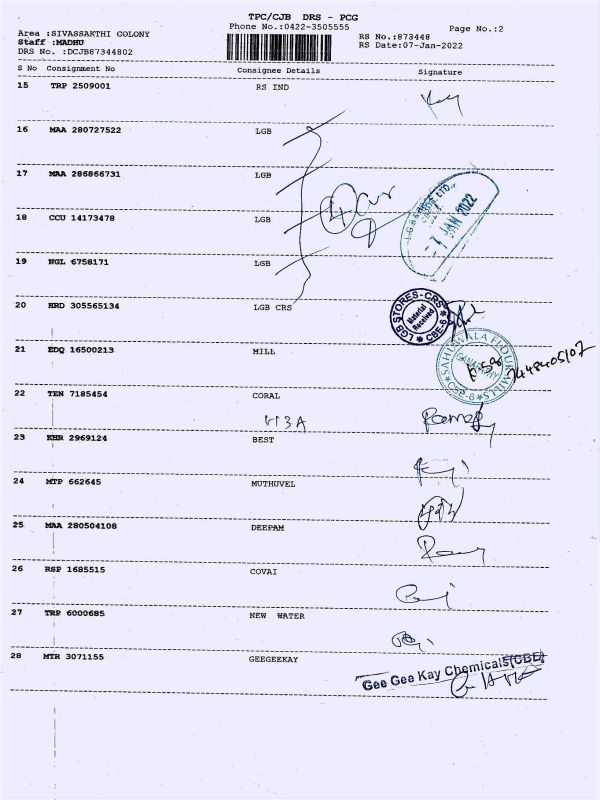 TPC/CJB DRS - PCG
Phone No.:0422-3505555
Page No.:2
Area :SIVASSAKTHI COLONY
RS No.:873448
Staff :MADHU
RS Date:07-Jan-2022
DRS No. :DCJB87344802
S No Consignment No Consignee Details Signature
15 TRP 2509001 RS IND
16 MAA 280727522 LGB
17 MAA 286866731 LGB
18 CCU 14173478 LGB
-7 JAN 2022
19 NGL 6758171 LGB
20 HRD 305565134 LGB CRS
LGB STORES-CRS
Material Received
CBE-6
21 EDQ 16500213 MILL
SAHUWALA FLOUR MILLS
CBE-6
7448405107
22 TEN 7185454 CORAL
H3A
23 KHR 2969124 BEST
24 MTP 662645 MUTHUVEL
25 MAA 280504108 DEEPAM
26 RSP 1685515 COVAI
27 TRP 6000685 NEW WATER
28 MTR 3071155 GEEGEEKAY
Gee Gee Kay Chemicals(CBE)